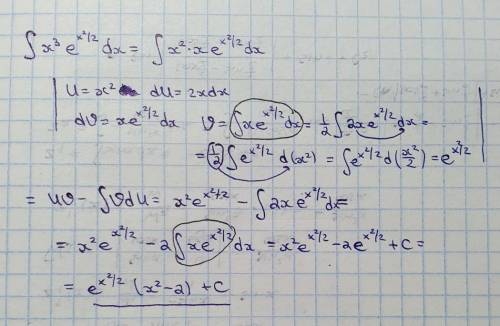 ∫ x³ e^(x²/2) dx = ∫ x² · x e^(x²/2) dx
u = x² du = 2x dx
dv = x e^(x²/2) dx v = ∫ x e^(x²/2) dx = 1/2 ∫ 2x e^(x²/2) dx =
= 1/2 ∫ e^(x²/2) d(x²) = ∫ e^(x²/2) d(x²/2) = e^(x²/2)
= uv - ∫ v du = x² e^(x²/2) - ∫ 2x e^(x²/2) dx =
= x² e^(x²/2) - 2 ∫ x e^(x²/2) dx = x² e^(x²/2) - 2e^(x²/2) + C =
= e^(x²/2) (x² - 2) + C